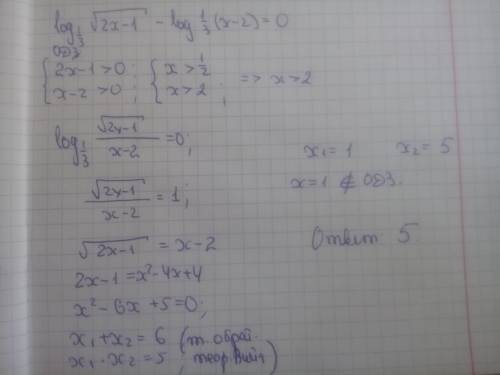 log_{1/3} √(2x-1) - log_{1/3} (x-2) = 0
ОДЗ
{ 2x-1>0; { x>1/2
{ x-2>0; { x>2; => x>2
log_{1/3} √(2x-1)/(x-2) =0;
√(2x-1)/(x-2) = 1;
√(2x-1) = x-2
2x-1=x²-4x+4
x²-6x+5=0;
x₁+x₂=6 (т. обрат.
x₁·x₂=5; теор. Виета)
x₁=1 x₂=5
x=1 ∉ ОДЗ.
Ответ: 5